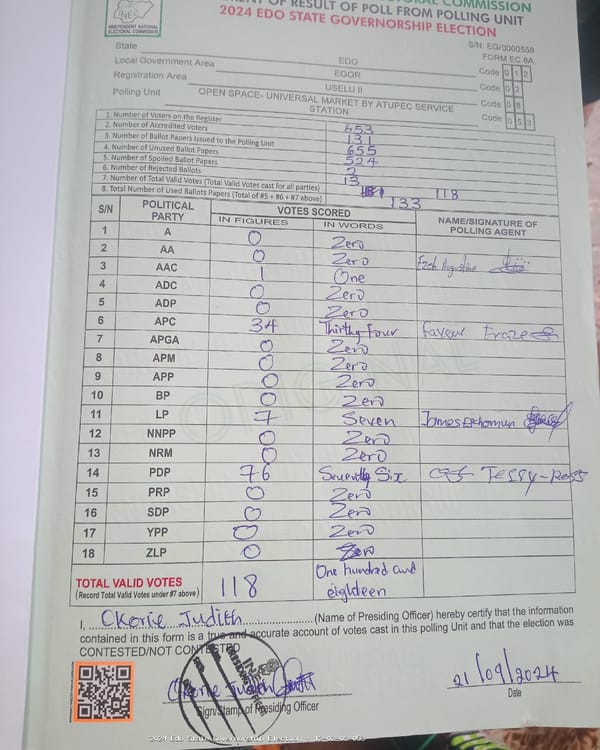 INEC
INDEPENDENT NATIONAL
ELECTORAL COMMISSION
COMMISSION
OF RESULT OF POLL FROM POLLING UNIT
2024 EDO STATE GOVERNORSHIP ELECTION
S/N. EG/0000558
FORM EC 8A
State EDO Code 0 1 2
Local Government Area EGOR Code 0 2
Registration Area USELU II Code 0 8
Polling Unit OPEN SPACE- UNIVERSAL MARKET BY ATUPEC SERVICE STATION Code 0 5 3
1. Number of Voters on the Register 653
2. Number of Accredited Voters 131
3. Number of Ballot Papers Issued to the Polling Unit 655
4. Number of Unused Ballot Papers 524
5. Number of Spoiled Ballot Papers 2
6. Number of Rejected Ballots 13
7. Number of Total Valid Votes (Total Valid Votes cast for all parties) 118
8. Total Number of Used Ballots Papers (Total of #5 + #6 + #7 above) 133
S/N POLITICAL PARTY VOTES SCORED NAME/SIGNATURE OF POLLING AGENT
IN FIGURES IN WORDS
1 A 0 Zero
2 AA 0 Zero
3 AAC 1 One
4 ADC 0 Zero
5 ADP 0 Zero
6 APC 34 Thirthy Four Favour
7 APGA 0 Zero
8 APM 0 Zero
9 APP 0 Zero
10 BP 0 Zero
11 LP 7 Seven James
12 NNPP 0 Zero
13 NRM 0 Zero
14 PDP 76 Seventhy Six Tessy-Ross
15 PRP 0 Zero
16 SDP 0 Zero
17 YPP 0 Zero
18 ZLP 0 Zero
TOTAL VALID VOTES 118 One hundred and eighteen
(Record Total Valid Votes under #7 above)
I, Okorie Judith (Name of Presiding Officer) hereby certify that the information
contained in this form is a true and accurate account of votes cast in this polling Unit and that the election was
CONTESTED/NOT CONTESTED
Okorie Judith
Sign/Stamp of Presiding Officer
21/09/2024
Date